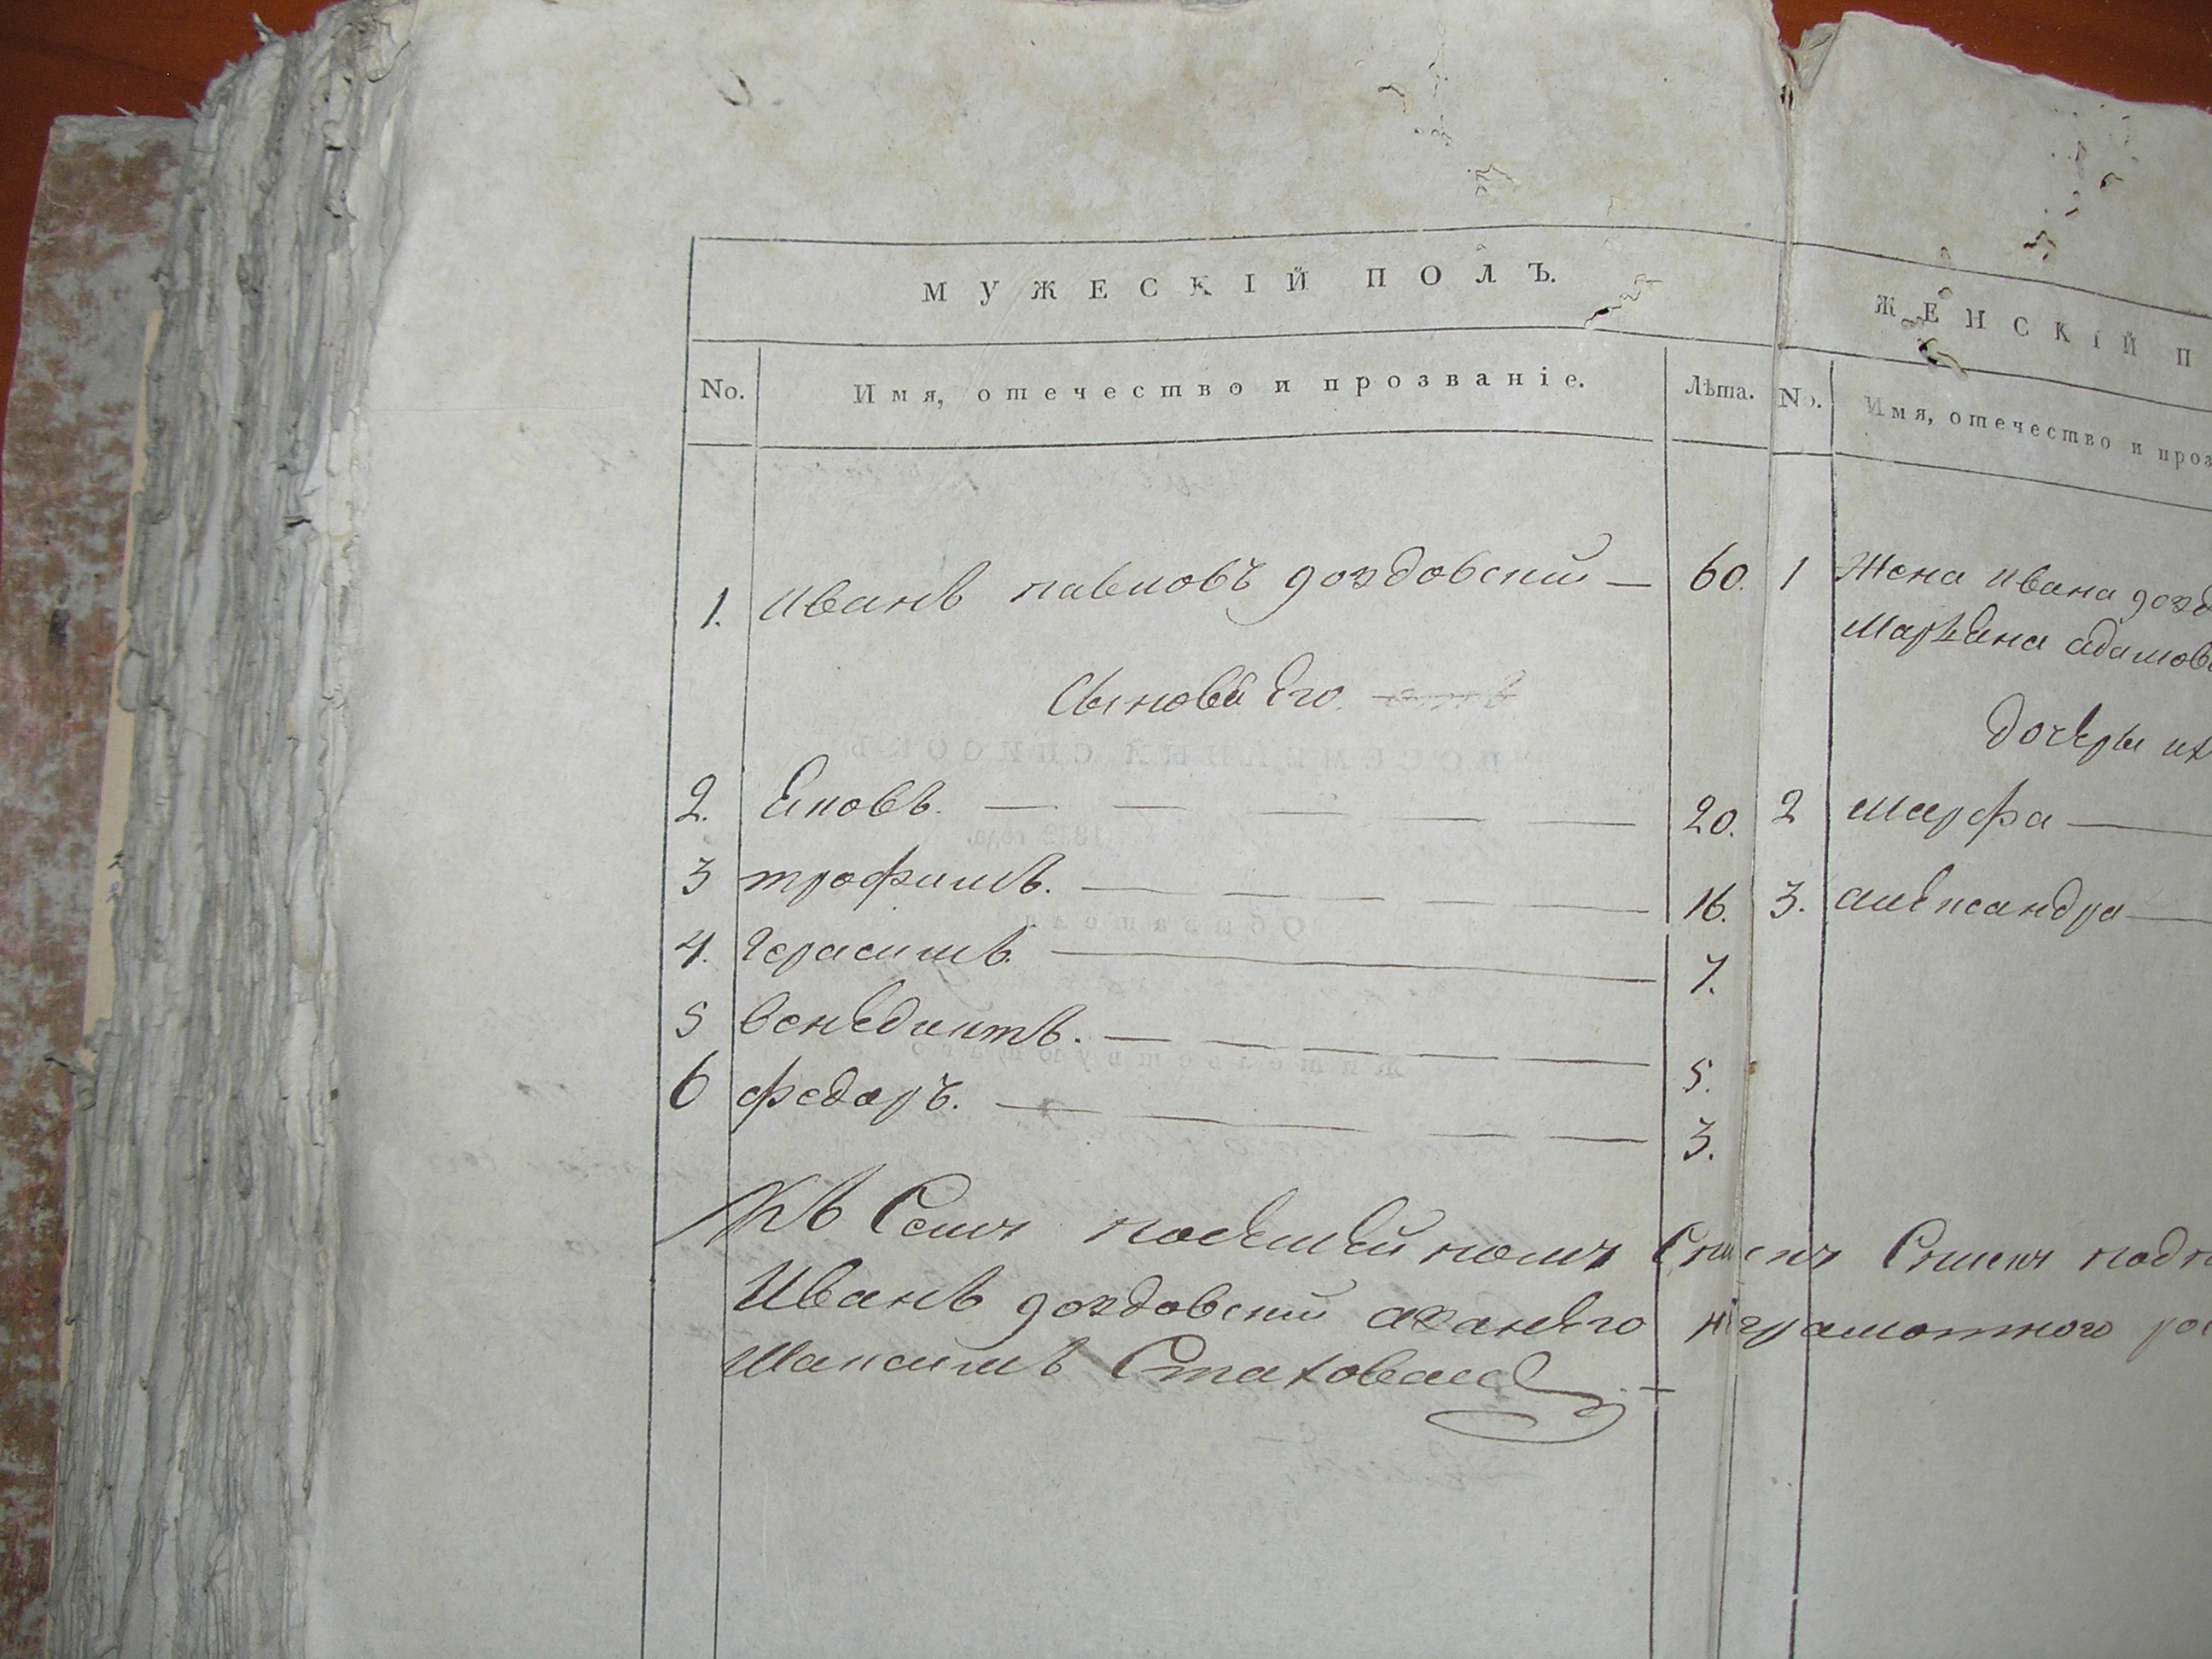 МУЖЕСКІЙ ПОЛЪ.
No. Имя, отечество и прозваніе. Лѣта.
1. иванъ павловъ доздовский — 60.
Сыновей Его
2. Яковъ. — 20.
3 трофимъ. — 16.
4. герасимъ — 7.
5 венедиктъ. — 5.
6 федоръ. — 3.
Къ Сему посемейному Списку
Иванъ доздовский азанего неграмотного
Максимъ
ЖЕНСКІЙ П
No. Имя, отечество и проз
1 Жена ивана дозд
Марьяна адамов
дочери их
2 марфа —
3. александра —